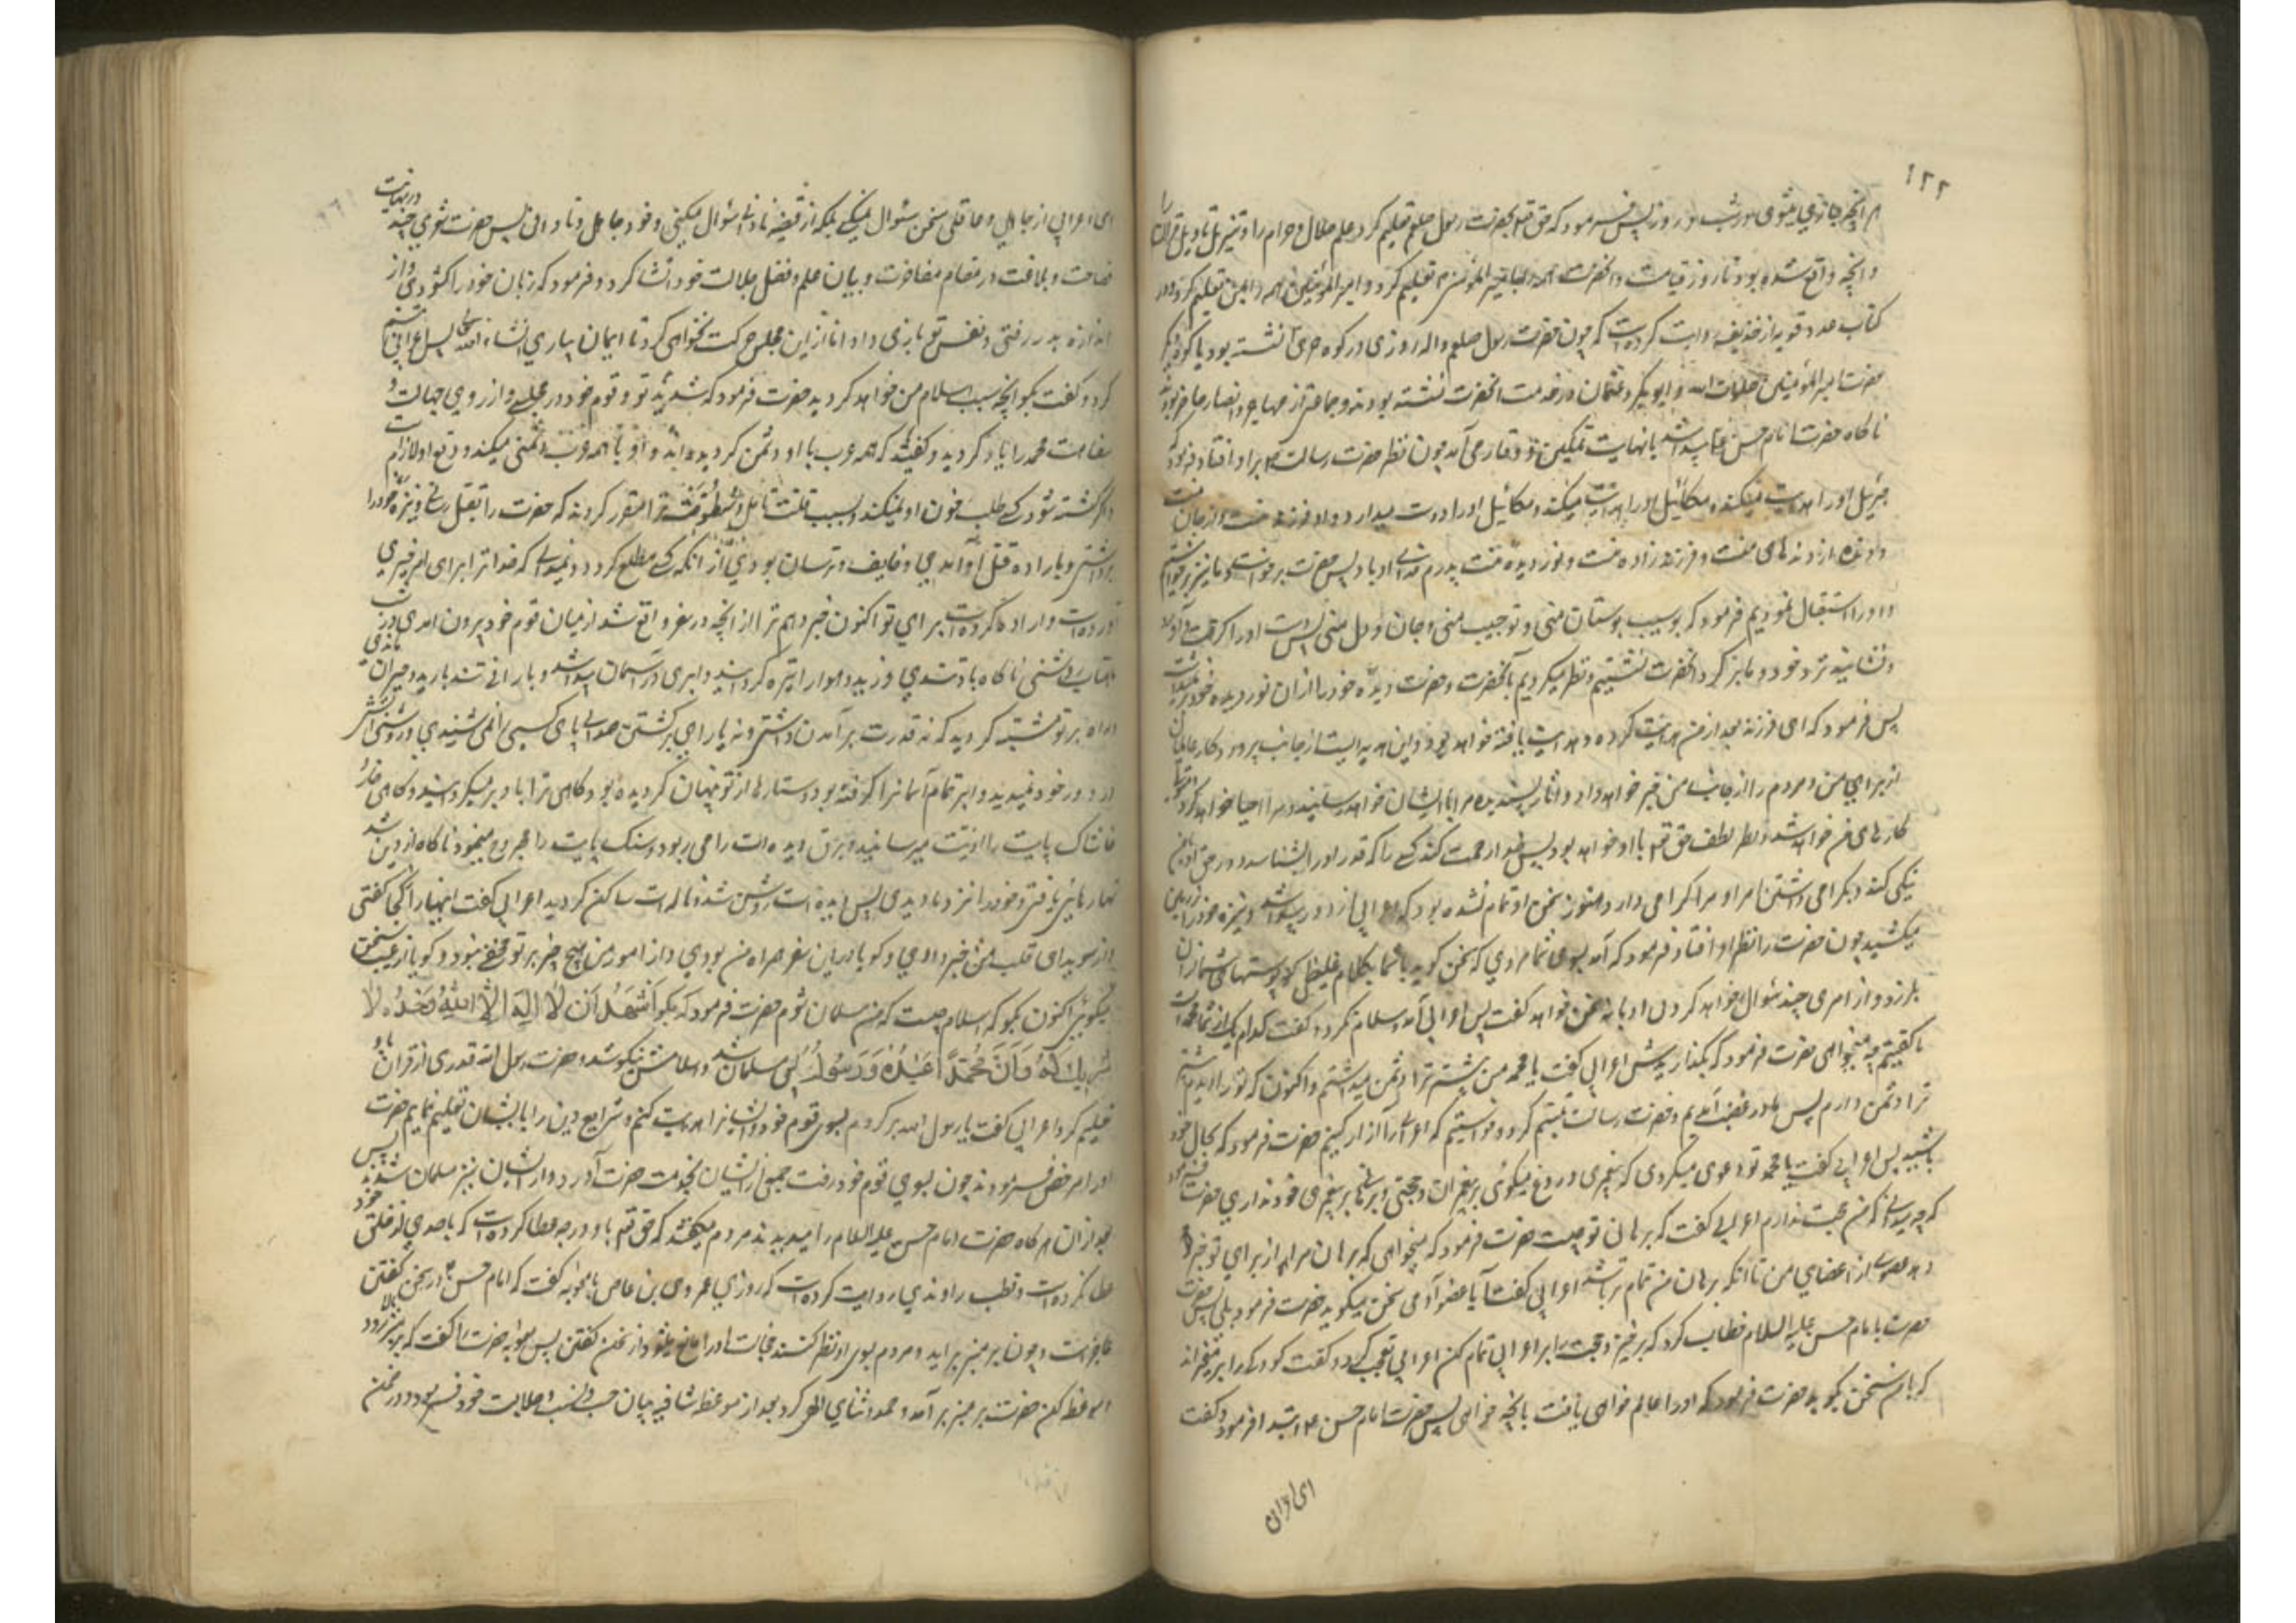 ۱۲۲
هر آنچه جاری میشود در شب و روز پس فرمود که حق تعم بحضرت رسول صلعم تعلیم کرد علم حلال و حرام را و تنزیل تاویل قرآن را
و آنچه واقع شده بود تا روز قیامت و آنحضرت همه را بامیر المؤمنین تعلیم کرد و امیر المؤمنین همه را بمن تعلیم کرد و در
کتاب عدد قویه از حذیفه روایت کرده است که چون حضرت رسول صلعم واله روزی در کوه حری نشسته بود یا کوه دیگر
حضرت امیر المؤمنین صلوات الله و ابوبکر و عثمان در خدمت آنحضرت نشسته بودند و جماعتی از مهاجر و انصار حاضر بودند
ناگاه حضرت امام حسن پیدا شد بانهایت تمکین و وقار می آمد چون نظر حضرت رسالت بر او افتاد فرمود که
جبرئیل او را هدایت میکند و میکائیل او را درست میدارد و او فرزند منست و از جان منست
و دنده از دنده های منست و فرزند زاده منست و نور دیده منست پدرم فدای او باد پس حضرت برخواست و ما نیز برخواستیم
و او را استقبال نمودیم فرمود که تو سیب بوستان منی و تو حبیب منی و جان و دل منی پس دست او را گرفت و آورد
و نشانید نزد خود و ما بر گرد آنحضرت نشستیم و نظر میکردیم بآنحضرت و حضرت دیده خود را از آن نور دیده خود بر نمیداشت
پس فرمود که ای فرزند بعد از من هدایت کرده و هدایت یافته خواهد بود و این هدیه ایست از جانب پروردگار عالمیان
از برای من و مردم را از جانب من خبر خواهد داد و آثار پسندیده مرا بایشان خواهد رسانید و مرا احیا خواهد کرد
کارهای من خواهد شد و نظر لطف حق تعم با او خواهد بود پس خدا رحمت کند کسی را که قدر او را بشناسد و در حق او بمن
نیکی کند و بگرامی داشتن او مرا گرامی دارد هنوز سخن او تمام نشده بود که اعرابی از دور پیدا شد و نیزه خود را بر زمین
میکشید چون حضرت را نظر بر او افتاد فرمود که آمد بسوی شما مردی که سخن گوید با شما بکلام غلیظ که پوستهای شما از آن
بلرزد و از امری چند سؤال خواهد کرد و بی ادبانه سخن خواهد گفت پس اعرابی آمد و سلام نکرد و گفت کدام یک از شما محمد است
ما گفتیم چه میخواهی حضرت فرمود که بگذاریدش اعرابی گفت یا محمد من پیشتر ترا دشمن میداشتم و اکنون که ترا دیدم بیشتر
ترا دشمن دارم پس ما در غضب آمدیم و حضرت رسالت تبسم کرد و خواستیم که اعرابی را آزار کنیم حضرت فرمود که بحال خود
باشید پس اعرابی گفت یا محمد تو دعوی میکردی که پیغمبری و دروغ میگوئی بر پیغمبران و حجتی و برهانی بر پیغمبری خود نداری حضرت فرمود
که چه میدانی که من حجت ندارم اعرابی گفت که برهان تو چیست حضرت فرمود که میخواهی که برهان مرا از برای تو خبر دهد
عضوی از اعضای من تا آنکه برهان من تمام تر باشد اعرابی گفت آیا عضو آدمی سخن میگوید حضرت فرمود بلی پس
حضرت با امام حسن علیه السلام خطاب کرد که برخیز و حجت را بر اعرابی تمام کن اعرابی تعجب کرد و گفت کودکی را بر میخیزاند
که با من سخن بگوید حضرت فرمود که او را عالم خواهی یافت بآنچه خواهی پس حضرت امام حسن ابتدا فرمود و گفت
ای اعرابی
ای اعرابی از جاهلی و عاقلی سخن سئوال نمیکنی بلکه از فقیه دانا سئوال میکنی و خود جاهل و نادانی پس حضرت شعری چند در نهایت
فصاحت و بلاغت در مقام مفاخرت و بیان علم و فضل و جلالت خود انشا کرد و فرمود که زبان خود را گشودی و از
اندازه بدر رفتی و نفس تو بازی داد اما از این مجلس حرکت نخواهی کرد تا ایمان بیاری انشاء الله تعالی پس اعرابی تبسم
کرد و گفت بگو آنچه سبب اسلام من خواهد گردید حضرت فرمود که شدید تو و قوم خود در مجلسی و از روی جهالت و
سفاهت محمد را یاد کردید و گفتید که همه عرب با او دشمن گردیده اند و او با همه عرب دشمنی میکند و دفع او لازم است
و اگر کشته شود کسی طلب خون او نمیکند
برداشتی و باراده قتل او آمدی و خایف و ترسان بودی از آنکه کسی مطلع گردد و نمیدانی که خدا ترا برای امر خیری
آورده است و اراده کرده است برای تو اکنون خبر دهم ترا از آنچه در سفر واقع شد از میان قوم خود بیرون آمدی در شب
مهتاب روشنی ناگاه باد تندی وزید و هوا را تیره گردانید و ابری در آسمان پیدا شد و بارانی تند بارید و حیران ماندی
و راه بر تو مشتبه گردید که نه قدرت بر آمدن داشتی و نه یارای برگشتن صدای پای کسی را نمی شنیدی و روشنی آتش
از دور خود نمیدید و ابر تمام آسمان را گرفته بود و ستاره ها از تو پنهان گردیده بود گاهی ترا باد بر میگردانید و گاهی خار
خاشاک پایت را اذیت میرسانید و برق دیده ات را می ربود و سنگ پایت را مجروح مینمود ناگاه از این شد
تها رهائی یافتی و خود را نزد ما دیدی پس دیده ات روشن شد و ناله ات ساکن گردید اعرابی گفت اینها را از کجا گفتی
و از سویدای قلب من خبر دادی و گویا در این سفر همراه من بودی و از امور من هیچ چیز بر تو مخفی نبود و گویا از غیب سخن
میگوئی اکنون بگو که اسلام چیست که من مسلمان شوم حضرت فرمود که بگو اَشْهَدُ اَنْ لَا اِلَهَ اِلَّا اللهُ وَحْدَهُ لَا
شَرِیكَ لَهُ وَاَنَّ مُحَمَّدًا عَبْدُهُ وَرَسُولُهُ پس مسلمان شد و اسلامش نیکو شد و حضرت رسول الله قدری از قرآن باو
تعلیم کرد اعرابی گفت یا رسول الله برگردم بسوی قوم خود و ایشان را هدایت کنم و شرایع دین را بایشان تعلیم نمایم حضرت
او را مرخص فرمودند چون بسوی قوم خود رفت جمیع ایشان بخدمت حضرت آورد و ایشان نیز مسلمان شدند پس
بعد از آن هر گاه حضرت امام حسن علیه السلام را میدیدند مردم میگفتند که حق تعم باو درجه عطا کرده است که باحدی از خلق خود
عطا نکرده است و قطب راوندی روایت کرده است که روزی عمرو بن عاص بامعویه گفت که امام حسن از سخن گفتن
عاجز است و چون بر منبر بر آید و مردم بسوی او نظر کنند خجالت او را مانع میشود از سخن گفتن پس معویه حضرت را گفت که بر منبر بالا رود
و موعظه کن حضرت بر منبر بر آمد و حمد و ثنای الهی کرد بعد از موعظه شافیه بیان حسب و نسب و جلالت خود فرمود و در ضمن